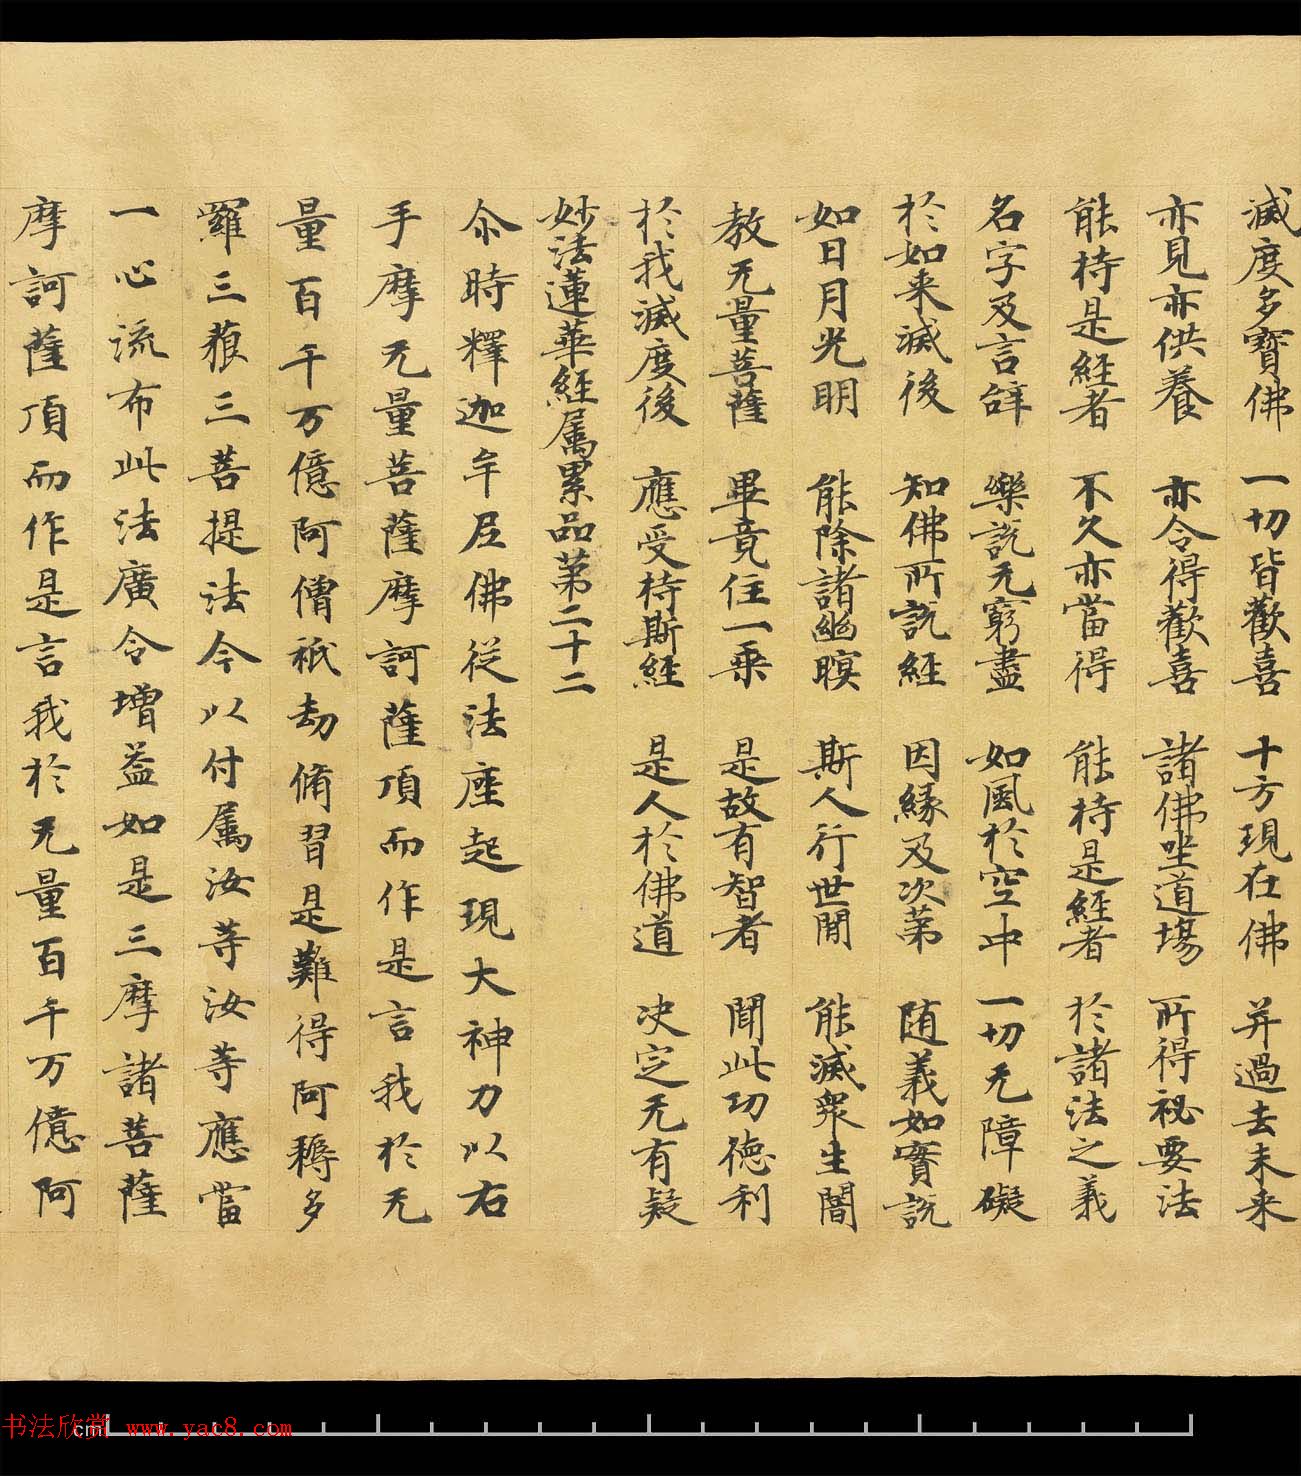 滅度多寶佛 一切皆歡喜 十方現在佛 并過去未来
亦見亦供養 亦令得歡喜 諸佛坐道場 所得祕要法
能持是経者 不久亦當得 能持是経者 於諸法之義
名字及言辞 樂說无窮盡 如風於空中 一切无障礙
於如来滅後 知佛所說経 因緣及次第 随義如實說
如日月光明 能除諸幽暝 斯人行世間 能滅衆生闇
教无量菩薩 畢竟住一乗 是故有智者 聞此功德利
於我滅度後 應受持斯経 是人於佛道 决定无有疑
妙法蓮華経属累品第二十二
尒時釋迦牟尼佛從法座起現大神力以右
手摩无量菩薩摩訶薩頂而作是言我於无
量百千万億阿僧祇劫脩習是難得阿耨多
羅三藐三菩提法今以付属汝等汝等應當
一心流布此法廣令增益如是三摩諸菩薩
摩訶薩頂而作是言我於无量百千万億阿
书法欣赏 www.yac8.com
cm